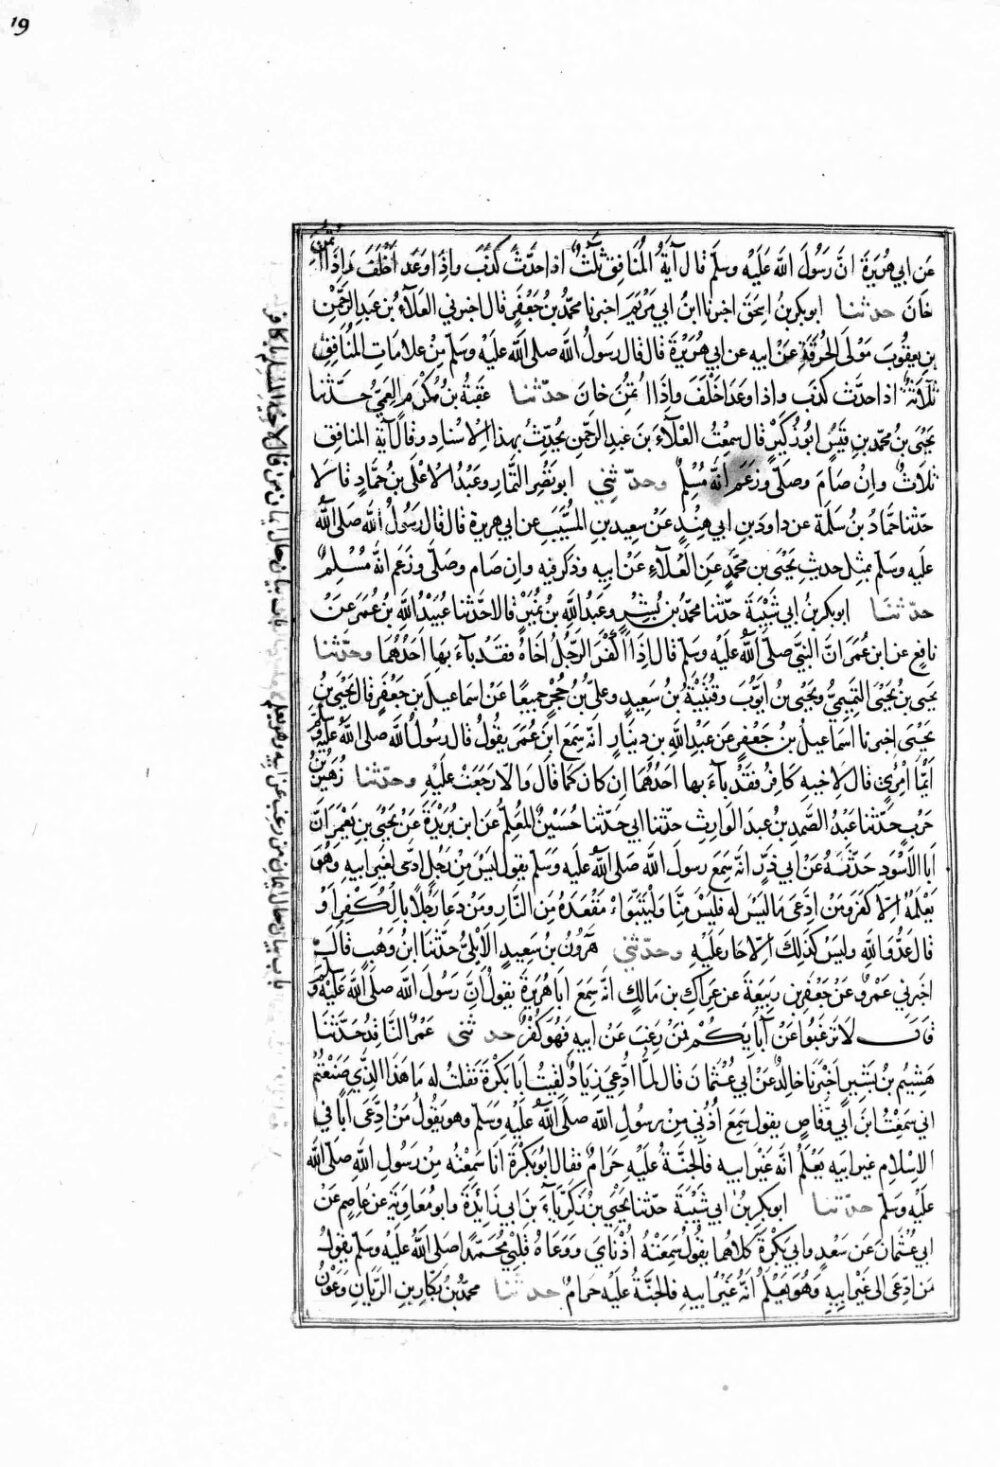 19
عن ابي هريرة ان رسول الله عليه وسلم قال آية المنافق ثلث اذا حدث كذب واذا وعد اخلف واذا ائتمن
خان حدثنا ابو بكر بن اسحق اخبرنا ابن ابي مريم اخبرنا محمد بن جعفر قال اخبرني العلاء بن عبد الرحمن
بن يعقوب مولى الحرقة عن ابيه عن ابي هريرة قال قال رسول الله صلى الله عليه وسلم من علامات المنافق
ثلاثة اذا حدث كذب واذا وعد اخلف واذا ائتمن خان حدثنا عقبة بن مكرم العمي حدثنا
يحيى بن محمد بن قيس ابو زكير قال سمعت العلاء بن عبد الرحمن يحدث بهذا الاسناد وقال آية المنافق
ثلاث وان صام وصلى وزعم انه مسلم وحدثني ابو نصر التمار وعبد الاعلى بن حماد قالا
حدثنا حماد بن سلمة عن داود بن ابي هند عن سعيد بن المسيب عن ابي هريرة قال قال رسول الله صلى الله
عليه وسلم بمثل حديث يحيى بن محمد عن العلاء عن ابيه وذكر فيه وان صام وصلى وزعم انه مسلم
حدثنا ابو بكر بن ابي شيبة حدثنا محمد بن بشر وعبد الله بن نمير قالا حدثنا عبيد الله بن عمر عن
نافع عن ابن عمر ان النبي صلى الله عليه وسلم قال اذا اكفر الرجل اخاه فقد باء بها احدهما وحدثنا
يحيى بن يحيى التميمي ويحيى بن ايوب وقتيبة بن سعيد وعلي بن حجر جميعا عن اسماعيل بن جعفر قال يحيى بن
يحيى اخبرنا اسماعيل بن جعفر عن عبد الله بن دينار انه سمع ابن عمر يقول قال رسول الله صلى الله عليه وسلم
ايما امرئ قال لاخيه كافر فقد باء بها احدهما ان كان كما قال والا رجعت عليه وحدثنا زهير بن
حرب حدثنا عبد الصمد بن عبد الوارث حدثنا ابي حدثنا حسين المعلم عن ابن بريدة عن يحيى بن يعمر ان
ابا الاسود حدثه عن ابي ذر انه سمع رسول الله صلى الله عليه وسلم يقول ليس من رجل ادعى لغير ابيه وهو
يعلمه الا كفر ومن ادعى ما ليس له فليس منا وليتبوأ مقعده من النار ومن دعا رجلا بالكفر او
قال عدو الله وليس كذلك الا حار عليه وحدثني هرون بن سعيد الايلي حدثنا ابن وهب قال
اخبرني عمرو عن جعفر بن ربيعة عن عراك بن مالك انه سمع ابا هريرة يقول ان رسول الله صلى الله عليه وسلم
قال لا ترغبوا عن آبايكم فمن رغب عن ابيه فهو كفر حدثني عمرو الناقد حدثنا
هشيم بن بشير اخبرنا خالد عن ابي عثمان قال لما ادعي زياد لقيت ابا بكرة فقلت له ما هذا الذي صنعتم
اني سمعت ابن ابي وقاص يقول سمع اذني من رسول الله صلى الله عليه وسلم وهو يقول من ادعى ابا في
الاسلام غير ابيه يعلم انه غير ابيه فالجنة عليه حرام فقال ابو بكرة انا سمعته من رسول الله صلى الله
عليه وسلم حدثنا ابو بكر بن ابي شيبة حدثنا يحيى بن زكرياء بن ابي زائدة وابو معاوية عن عاصم عن
ابي عثمان عن سعد وابي بكرة كلاهما يقول سمعته اذناي ووعاه قلبي محمدا صلى الله عليه وسلم يقول
من ادعى الى غير ابيه وهو يعلم انه غير ابيه فالجنة عليه حرام حدثنا محمد بن بكار بن الريان وعون
باب بيان حال ايمان من قال لاخيه المسلم يا كافر
باب بيان حال ايمان من رغب عن ابيه وهو يعلم